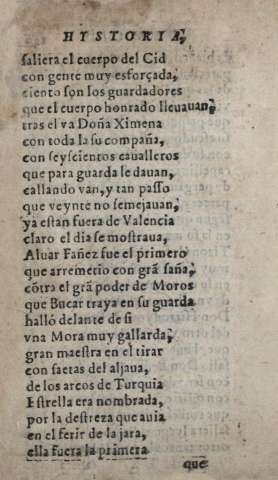 HYSTORIA,
saliera el cuerpo del Cid
con gente muy esforçada,
ciento son los guardadores
que el cuerpo honrado lleuauan,
tras el va Doña Ximena
con toda la su compaña,
con seyscientos caualleros
que para guarda le dauan,
callando van, y tan passo
que veynte no semejauan,
ya estan fuera de Valencia
claro el dia se mostraua,
Aluar Fañez fue el primero
que arremetio con grã saña,
cõtra el grã poder de Moros
que Bucar traya en su guarda
halló delante de si
vna Mora muy gallarda,
gran maestra en el tirar
con saetas del aljaua,
de los arcos de Turquia
Estrella era nombrada,
por la destreza que auia
en el ferir de la jara,
ella fuera la primera
que